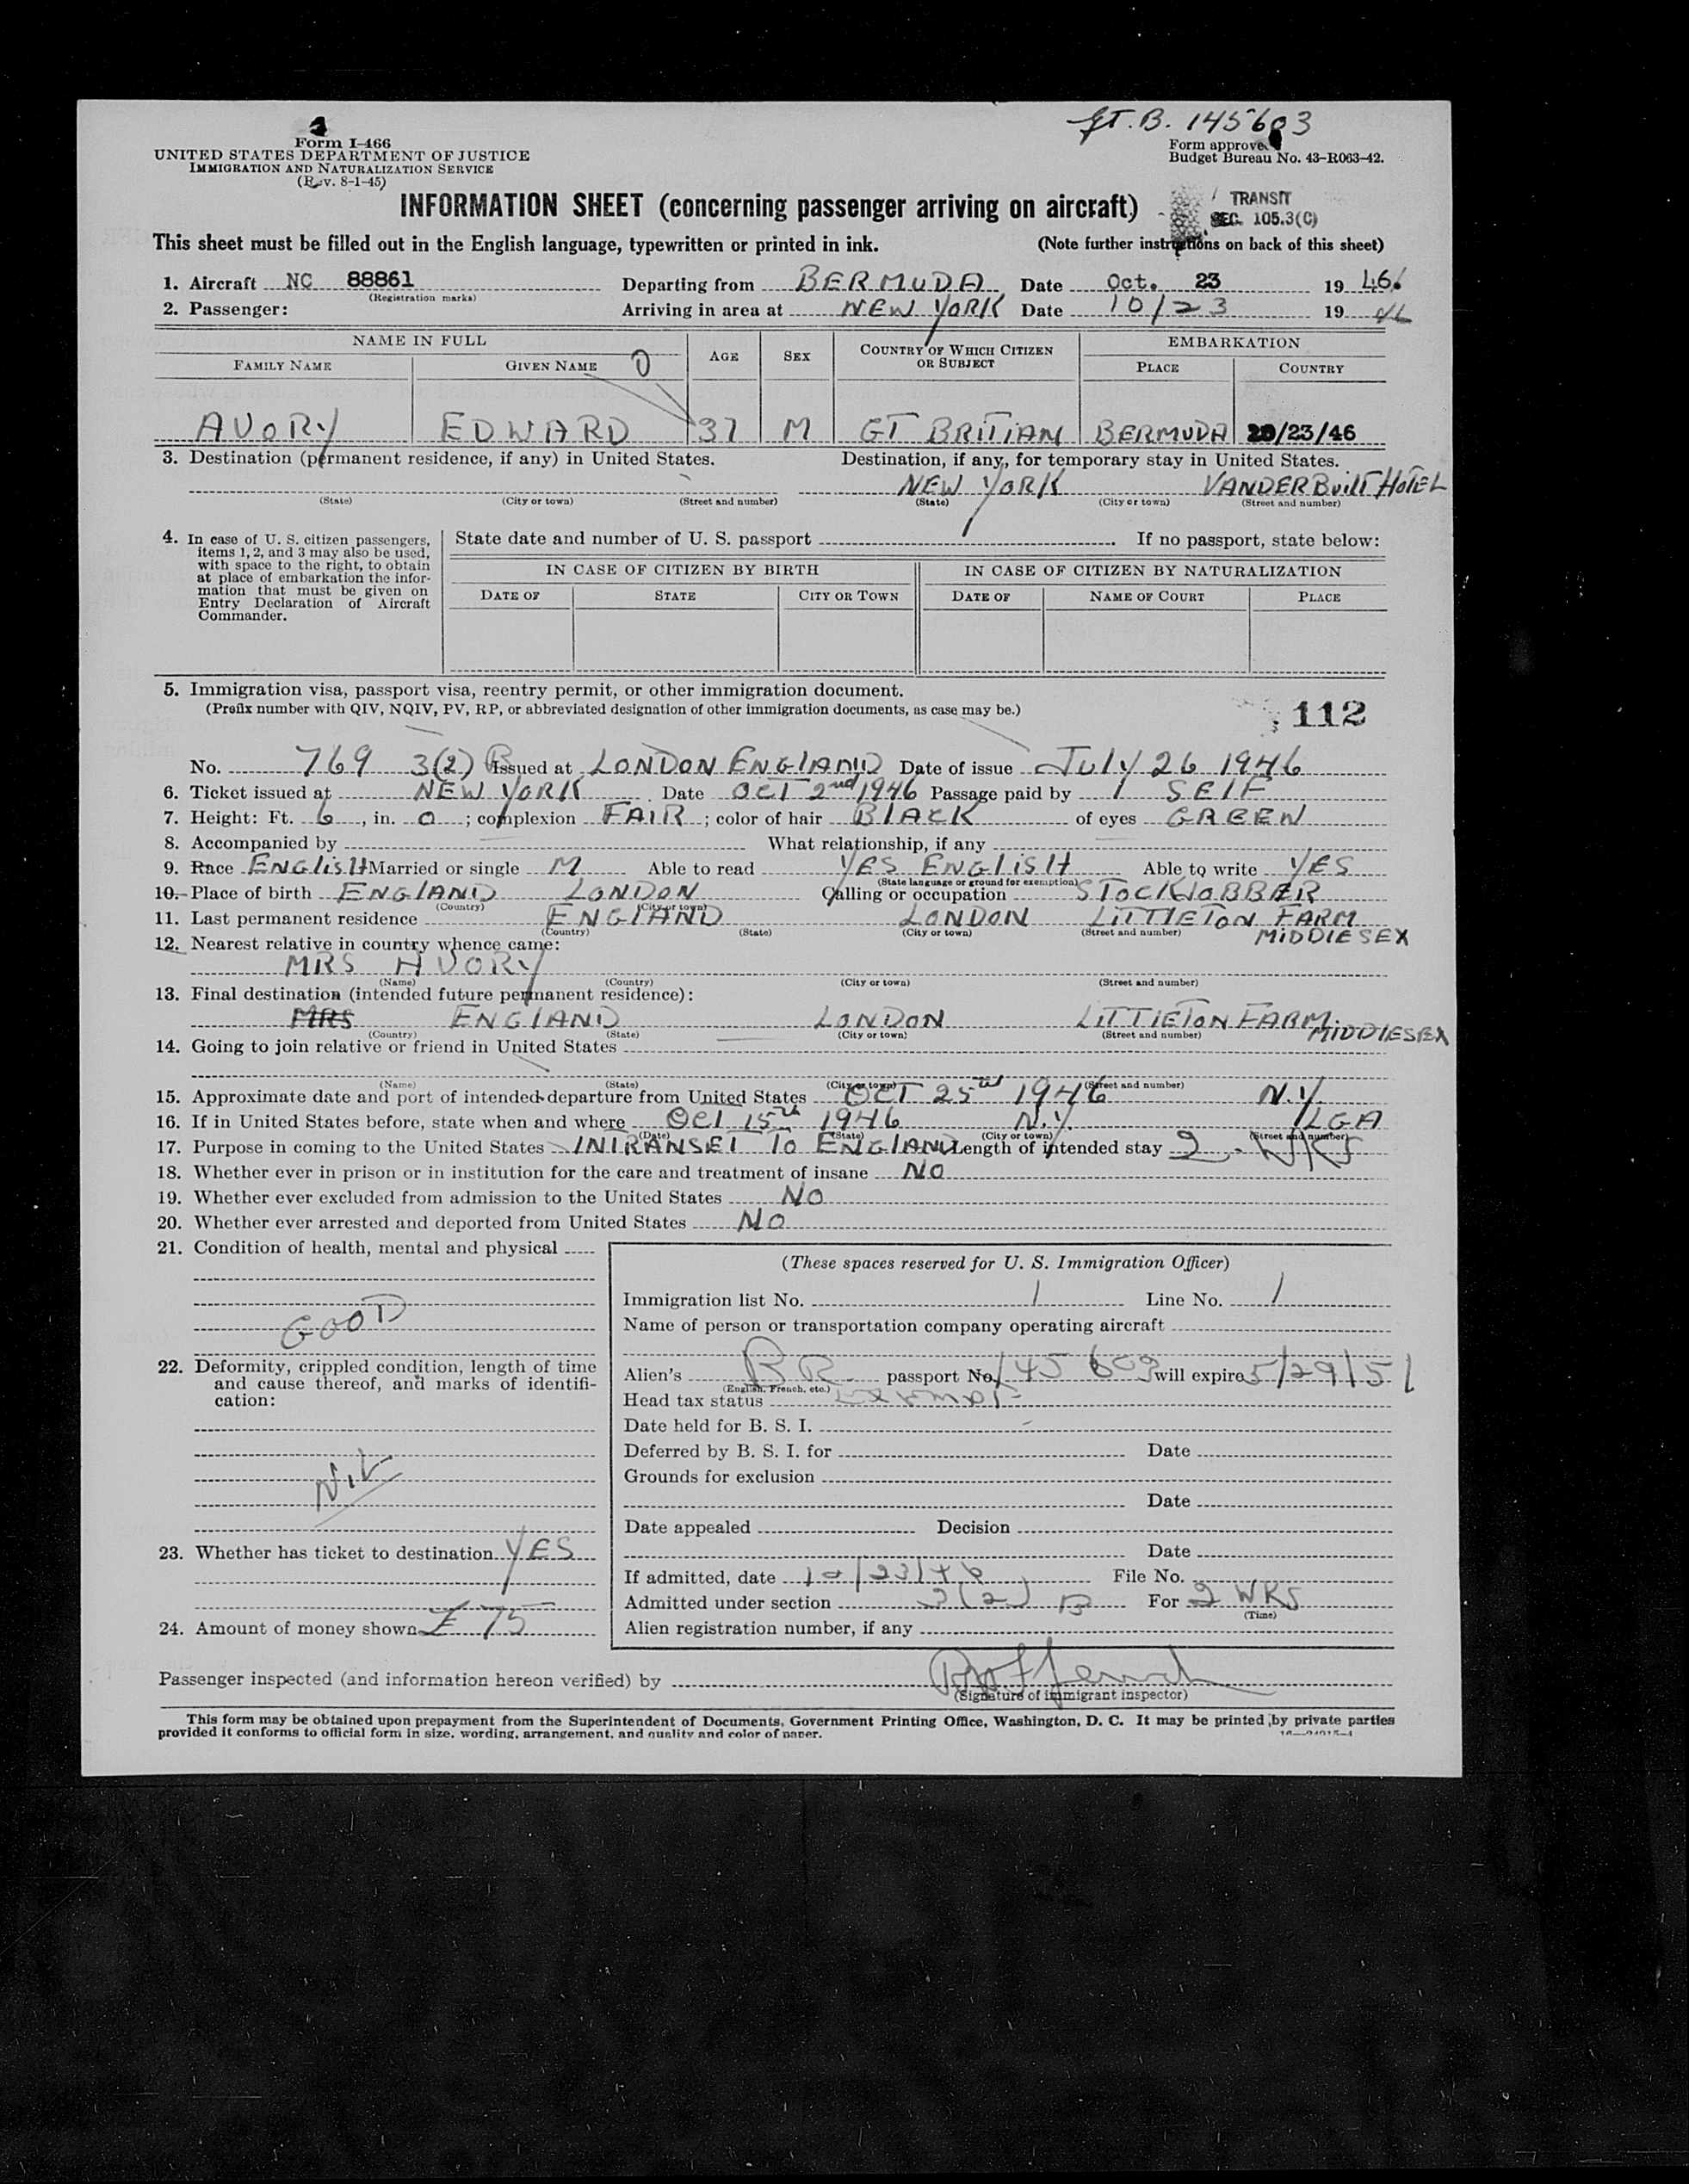 gT. B. 145603
Form I-466
UNITED STATES DEPARTMENT OF JUSTICE
IMMIGRATION AND NATURALIZATION SERVICE
(Rev. 8-1-45)
Form approved
Budget Bureau No. 43-R063-42.
INFORMATION SHEET (concerning passenger arriving on aircraft)
TRANSIT
SEC. 105.3(C)
This sheet must be filled out in the English language, typewritten or printed in ink. (Note further instructions on back of this sheet)
1. Aircraft NC 88861 Departing from BERMUDA Date Oct. 23 1946.
(Registration marks)
2. Passenger: Arriving in area at NEW YORK Date 10/23 1946
NAME IN FULL AGE SEX COUNTRY OF WHICH CITIZEN OR SUBJECT EMBARKATION
FAMILY NAME GIVEN NAME PLACE COUNTRY
AVORY EDWARD 37 M GT BRITIAN BERMUDA 10/23/46
3. Destination (permanent residence, if any) in United States. Destination, if any, for temporary stay in United States.
NEW YORK VANDERBuilT HOTEL
(State) (City or town) (Street and number) (State) (City or town) (Street and number)
4. In case of U. S. citizen passengers, items 1, 2, and 3 may also be used, with space to the right, to obtain at place of embarkation the information that must be given on Entry Declaration of Aircraft Commander.
State date and number of U. S. passport If no passport, state below:
IN CASE OF CITIZEN BY BIRTH IN CASE OF CITIZEN BY NATURALIZATION
DATE OF STATE CITY OR TOWN DATE OF NAME OF COURT PLACE
5. Immigration visa, passport visa, reentry permit, or other immigration document.
(Prefix number with QIV, NQIV, PV, RP, or abbreviated designation of other immigration documents, as case may be.)
112
No. 769 3(2) B Issued at LONDON ENGLAND Date of issue July 26 1946
6. Ticket issued at NEW YORK Date OCT 2nd 1946 Passage paid by SELF
7. Height: Ft. 6, in. 0; complexion FAIR; color of hair BLACK of eyes GREEN
8. Accompanied by What relationship, if any
9. Race ENGLISH Married or single M Able to read YES ENGLISH Able to write YES
(State language or ground for exemption)
10. Place of birth ENGLAND LONDON Calling or occupation STOCKJOBBER
(Country) (City or town)
11. Last permanent residence ENGLAND LONDON LITTLETON FARM
(Country) (State) (City or town) (Street and number) MIDDLESEX
12. Nearest relative in country whence came:
MRS AVORY
(Name) (Country) (City or town) (Street and number)
13. Final destination (intended future permanent residence):
MRS ENGLAND LONDON LITTLETON FARM MIDDLESEX
(Country) (State) (City or town) (Street and number)
14. Going to join relative or friend in United States
(Name) (State) (City or town) (Street and number)
15. Approximate date and port of intended departure from United States OCT 25th 1946 N.Y.
16. If in United States before, state when and where OCT 15th 1946 N.Y. LGA
(Date) (State) (City or town) (Street and number)
17. Purpose in coming to the United States INTRANSET TO ENGLAND Length of intended stay 2 WKS
18. Whether ever in prison or in institution for the care and treatment of insane NO
19. Whether ever excluded from admission to the United States NO
20. Whether ever arrested and deported from United States NO
21. Condition of health, mental and physical
GOOD
22. Deformity, crippled condition, length of time and cause thereof, and marks of identification:
NIL
23. Whether has ticket to destination YES
24. Amount of money shown £ 75
(These spaces reserved for U. S. Immigration Officer)
Immigration list No. 1 Line No. 1
Name of person or transportation company operating aircraft
Alien's BR passport No. 145603 will expire 5/29/51
(English, French, etc.)
Head tax status Exempt
Date held for B. S. I.
Deferred by B. S. I. for Date
Grounds for exclusion
Date
Date appealed Decision
Date
If admitted, date 10/23/46 File No.
Admitted under section 3(2) B For 2 WKS
(Time)
Alien registration number, if any
Passenger inspected (and information hereon verified) by
(Signature of immigrant inspector)
This form may be obtained upon prepayment from the Superintendent of Documents, Government Printing Office, Washington, D. C. It may be printed by private parties
provided it conforms to official form in size, wording, arrangement, and quality and color of paper.